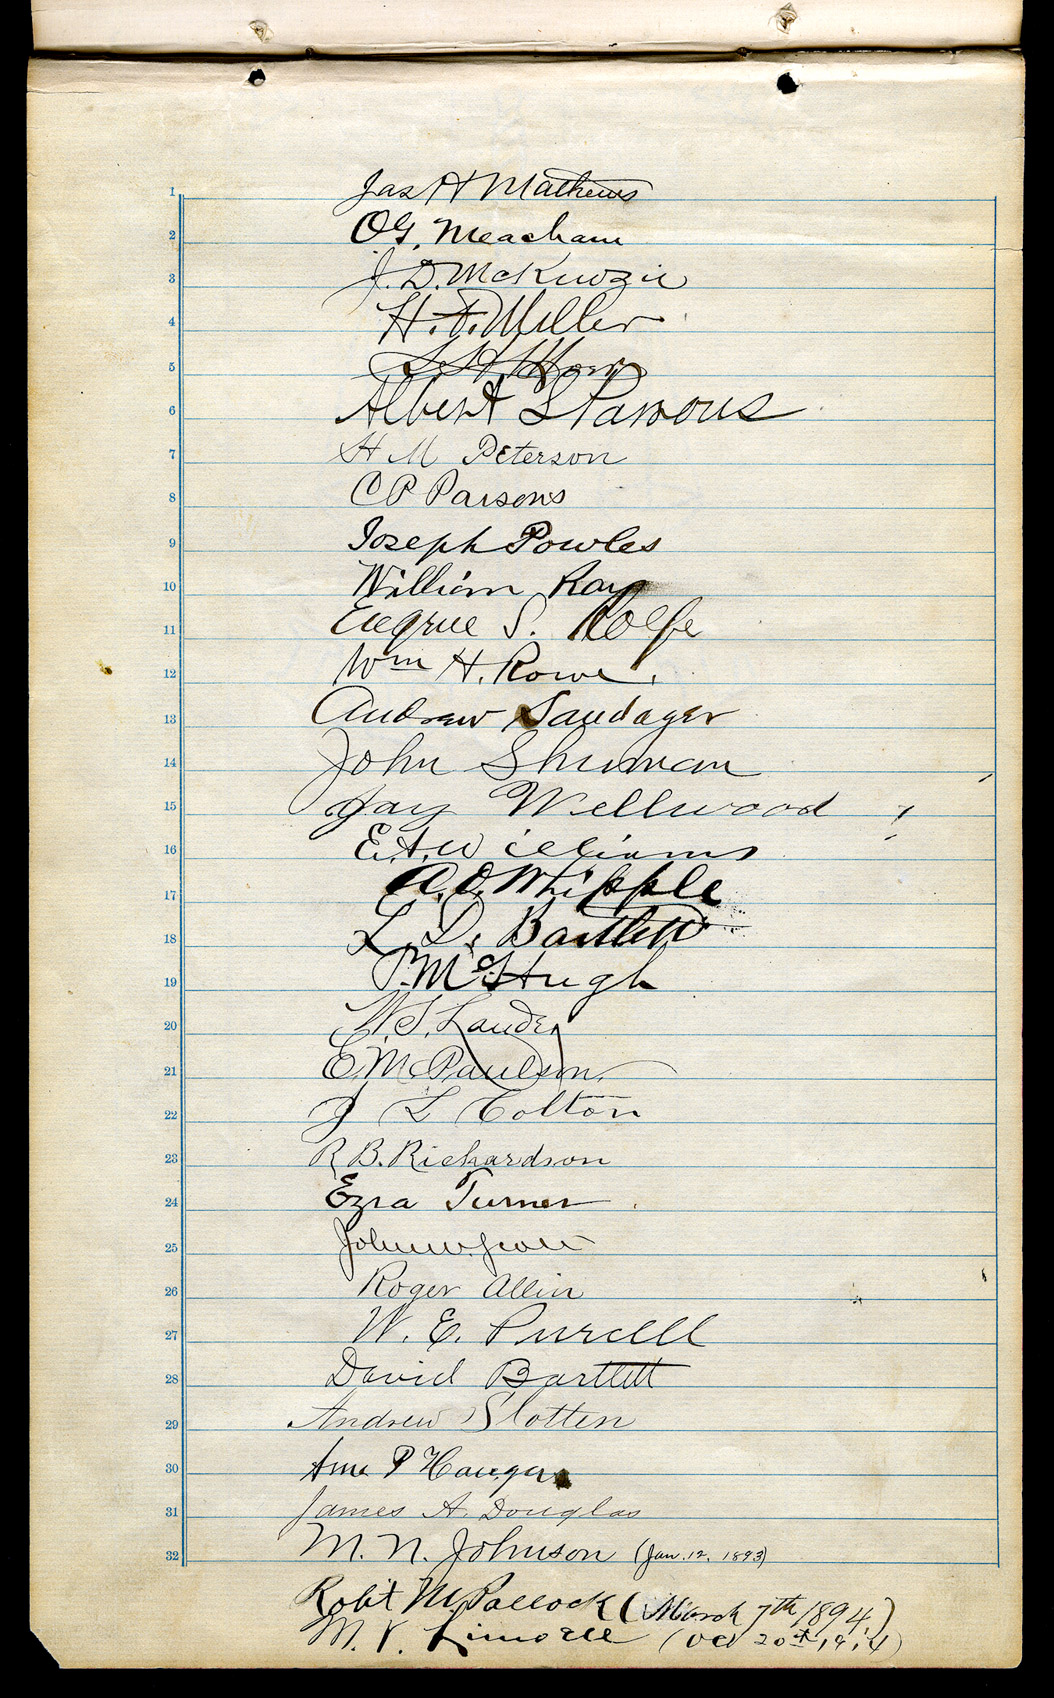 1 Jas H Mathews
2 O G. Meacham
3 J. D. McKenzie
4 H. F. Miller
5 L. H. Hoar
6 Albert S Parsons
7 H M Peterson
8 C P Parsons
9 Joseph Powles
10 William Ray
11 Eugene S. Rolfe
12 Wm H. Rowe.
13 Andrew Sandager
14 John Shuman
15 Jay Wellwood
16 E. A. Williams
17 A. O. Whipple
18 L. D. Bartlett
19 P. McHugh
20 W. S. Lauder
21 E. M Paulson.
22 J L Colton
23 R B. Richardson
24 Ezra Turner
25 John W. Scott
26 Roger Allin
27 W. E. Purcell
28 David Bartlett
29 Andrew Slotten
30 Arne P Haugen
31 James A. Douglas
32 M. N. Johnson (Jan. 12, 1893)
Robt M Pollock (March 7th 1894)
M. V. (Oct 20th 1914)